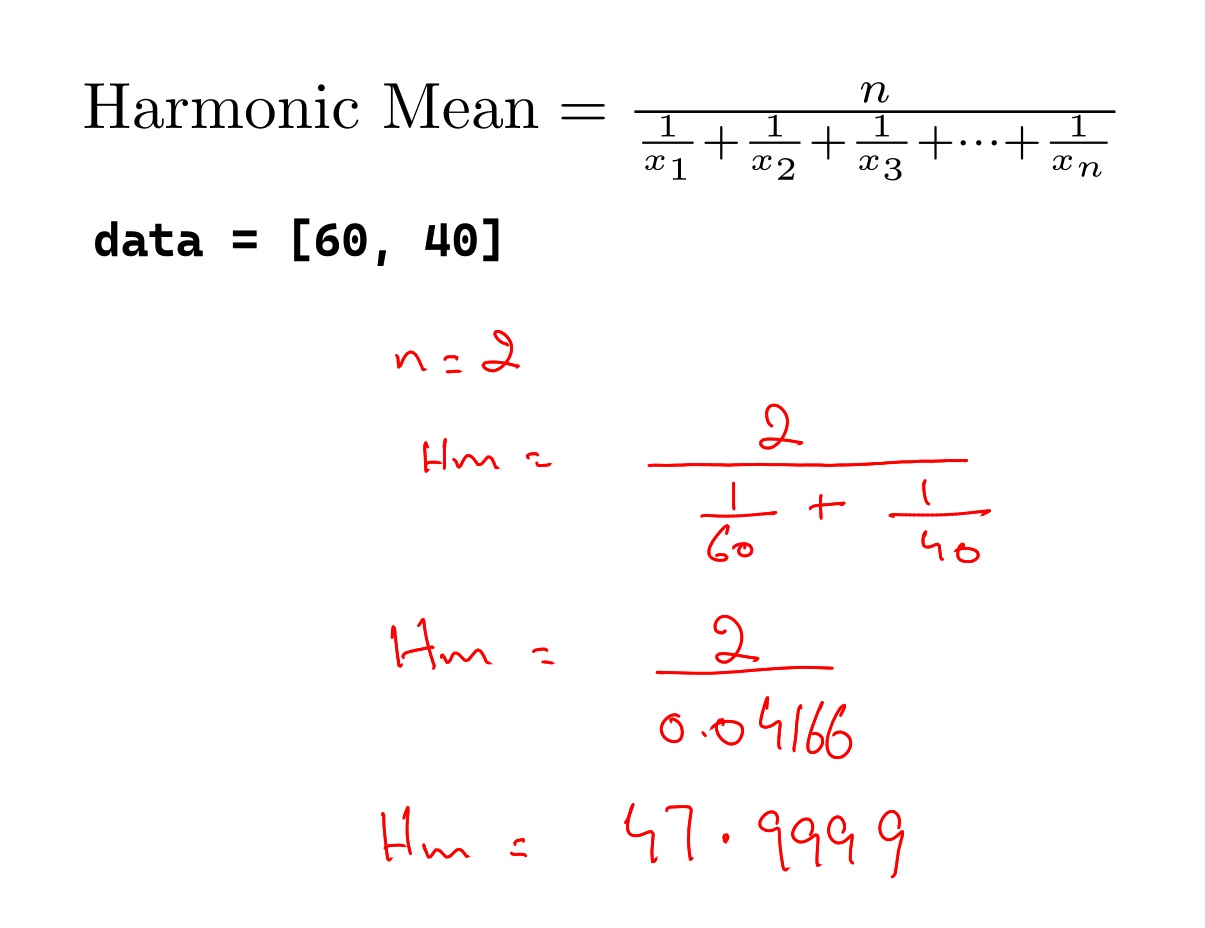 Harmonic Mean = \frac{n}{\frac{1}{x_1}+\frac{1}{x_2}+\frac{1}{x_3}+\cdots+\frac{1}{x_n}}
data = [60, 40]
n = 2
Hm = \frac{2}{\frac{1}{60} + \frac{1}{40}}
Hm = \frac{2}{0.04166}
Hm = 47.9999